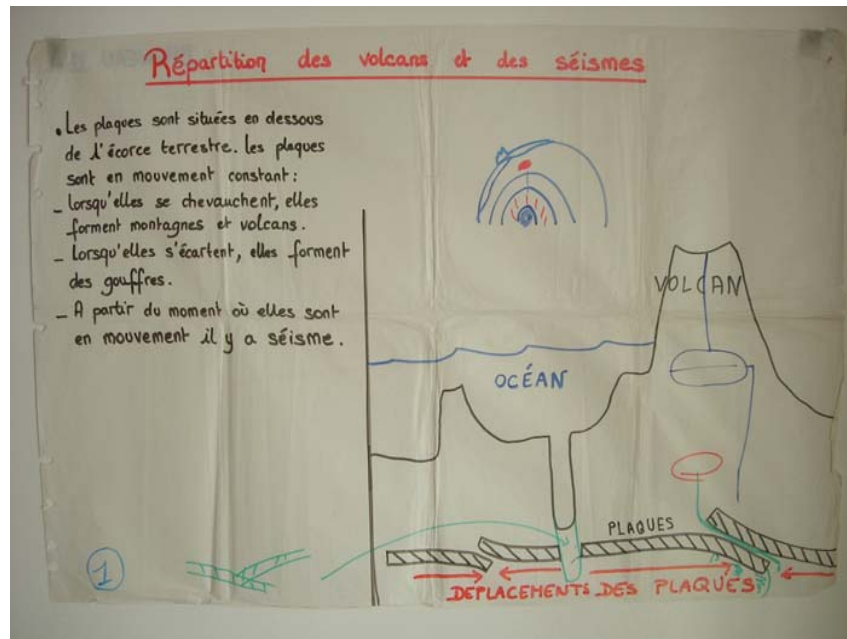 Répartition des volcans et des séismes
• Les plaques sont situées en dessous
de l'écorce terrestre. les plaques
sont en mouvement constant :
_ lorsqu'elles se chevauchent, elles
forment montagnes et volcans.
_ Lorsqu'elles s'écartent, elles forment
des gouffres.
_ A partir du moment où elles sont
en mouvement il y a séisme.
VOLCAN
OCÉAN
PLAQUES
DEPLACEMENTS DES PLAQUES
1